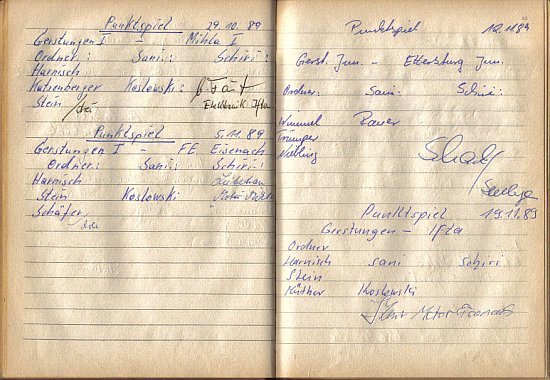 Punktspiel 29.10.89
Gerstungen I - Mihla I
Ordner: Sani: Schiri:
Harnisch
Katzenberger Koslowski:
Stein Elektronik Ifta
Punktspiel 5.11.89
Gerstungen I - FE Eisenach
Ordner: Sani: Schiri:
Harnisch
Stein Koslowski Motor
Schäfer
Punktspiel 12.11.89
Gerst. Jun. - Ettersburg Jun.
Ordner: Sani: Schiri:
Wummel Bauer
Trümper
Punktspiel 19.11.89
Gerstungen - Ifta
Ordner
Harnisch Sani Schiri
Stein
Küther Koslowski
Motor Eisenach